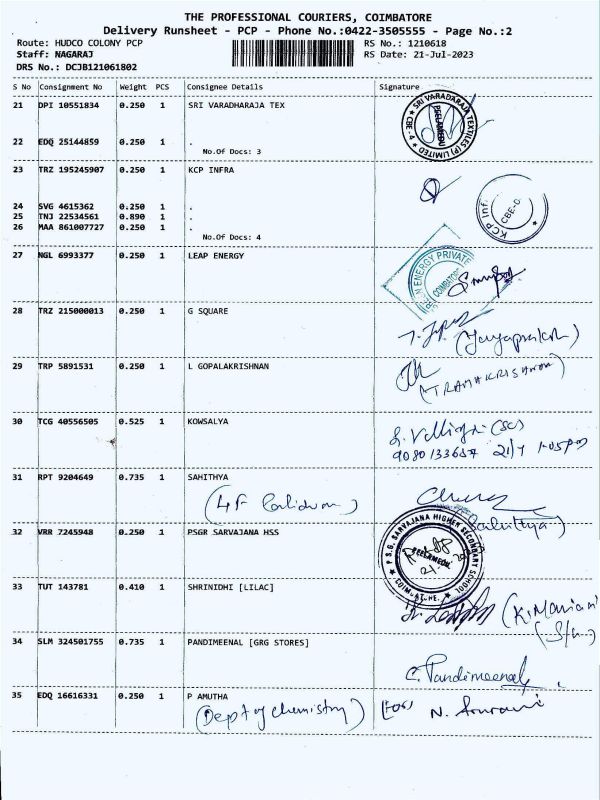 THE PROFESSIONAL COURIERS, COIMBATORE
Delivery Runsheet - PCP - Phone No.:0422-3505555 - Page No.:2
Route: HUDCO COLONY PCP RS No.: 1210618
Staff: NAGARAJ RS Date: 21-Jul-2023
DRS No.: DCJB121061802
S No Consignment No Weight PCS Consignee Details Signature
21 DPI 10551834 0.250 1 SRI VARADHARAJA TEX
SRI VARADARAJA TEXTILES (P) LIMITED CBE-4
PEELAMEDU
22 EDQ 25144859 0.250 1 .
No.Of Docs: 3
23 TRZ 195245907 0.250 1 KCP INFRA
KCP Inf
CBE-
24 SVG 4615362 0.250 1 .
25 TNJ 22534561 0.890 1 .
26 MAA 861007727 0.250 1 .
No.Of Docs: 4
27 NGL 6993377 0.250 1 LEAP ENERGY
ENERGY PRIVATE
COIMBATORE
28 TRZ 215000013 0.250 1 G SQUARE
(Jayaprakash)
29 TRP 5891531 0.250 1 L GOPALAKRISHNAN
(T RAMAKRISHNAN)
30 TCG 40556505 0.525 1 KOWSALYA
(SC)
9080133657 21/7 1.05pm
31 RPT 9204649 0.735 1 SAHITHYA
(4F )
(Sahithya)
32 VRR 7245948 0.250 1 PSGR SARVAJANA HSS
P S.G. SARVAJANA HIGHER SECONDARY SCHOOL
PEELAMEDU
21.
33 TUT 143781 0.410 1 SHRINIDHI [LILAC]
(K.Mariani
(S/w)
34 SLM 324501755 0.735 1 PANDIMEENAL [GRG STORES]
C. Pandimeenal
35 EDQ 16616331 0.250 1 P AMUTHA
(Dept of chemistry) (for) N.